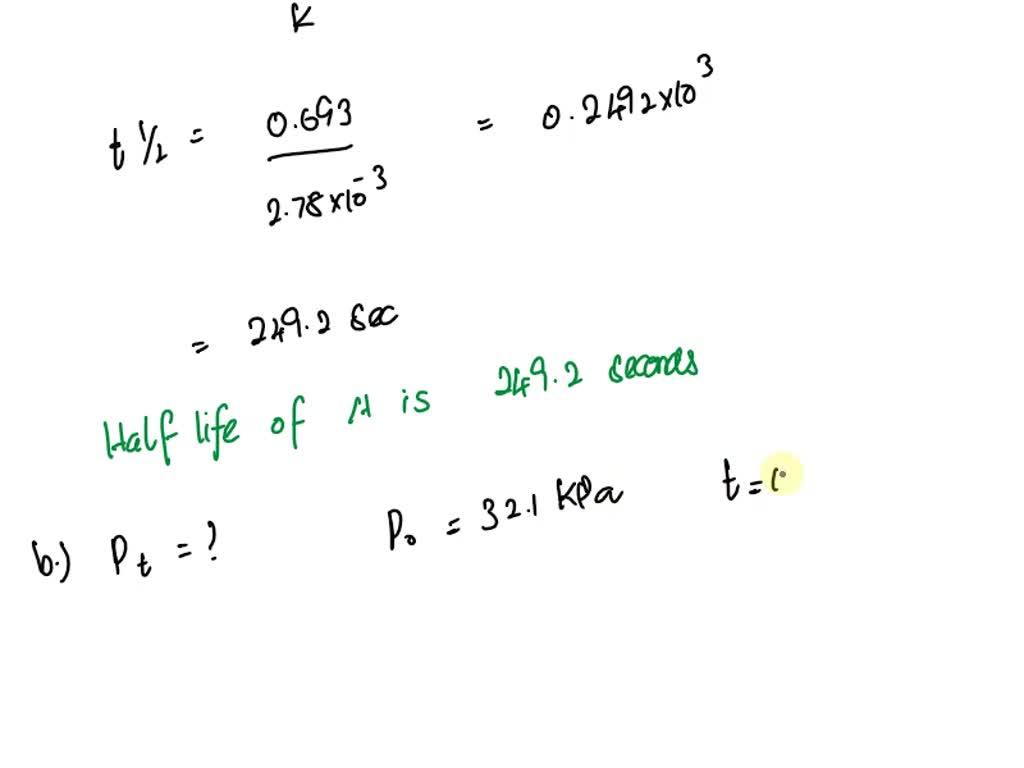 K
t 1/2 = 0.693 / 2.78×10^-3 = 0.2492×10^3
= 249.2 sec
Half life of A is 249.2 seconds
b.) Pt = ? P0 = 32.1 KPa t =